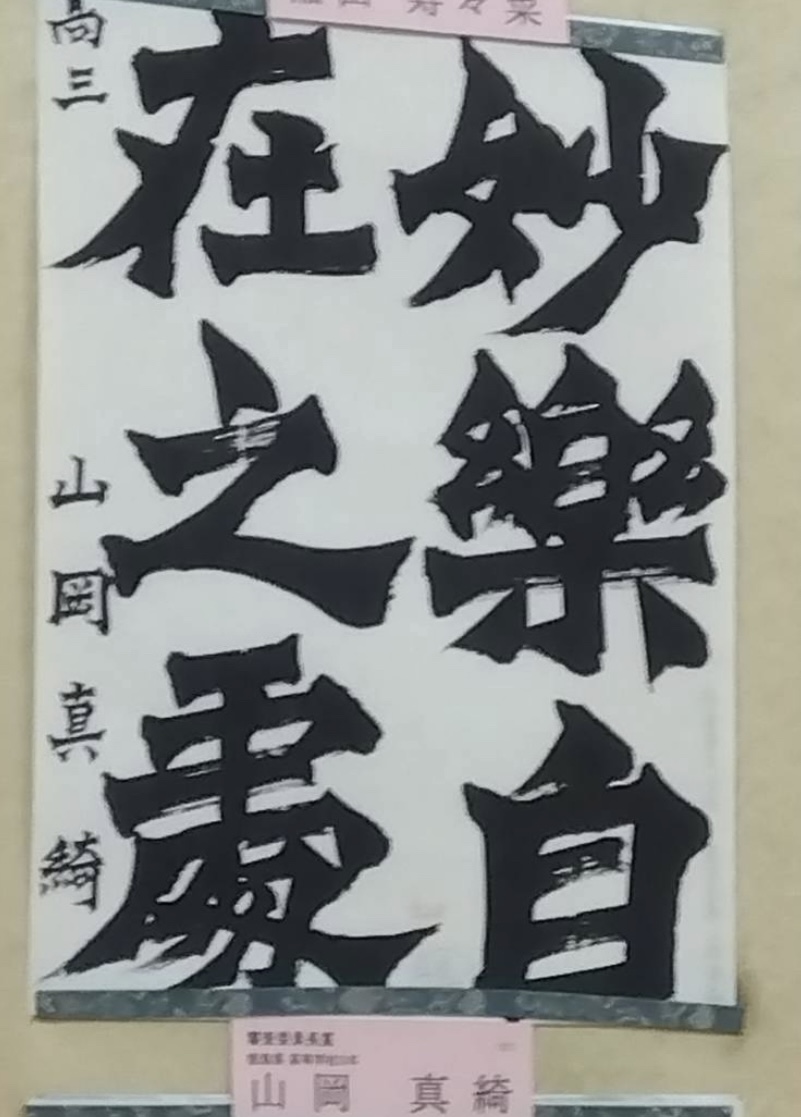 妙樂自
在之處
高三 山岡真綺
山岡 真綺